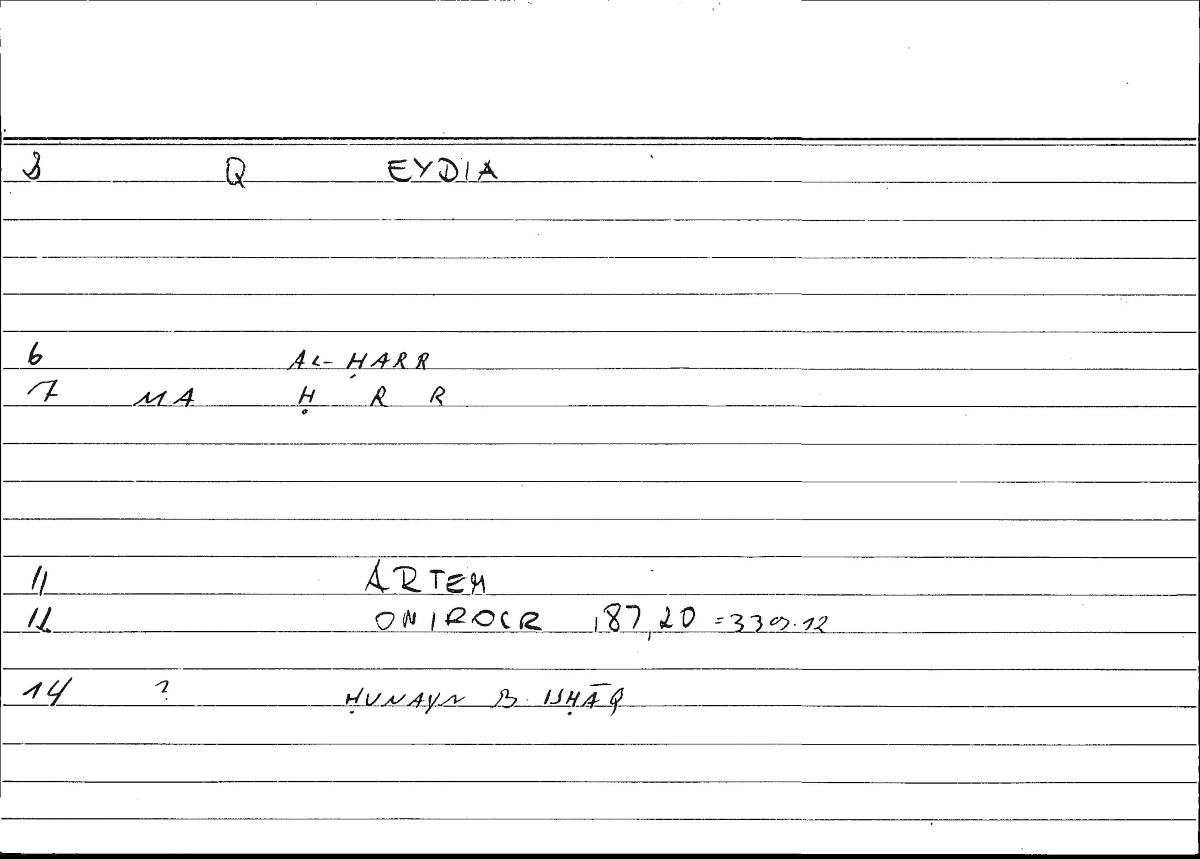 3 Q EYDIA
6 AL-ḤARR
7 MA Ḥ R R
11 ARTEM
12 ONIROCR 187,20 = 339.12
14 ? ḤUNAYN B. ISḤĀQ